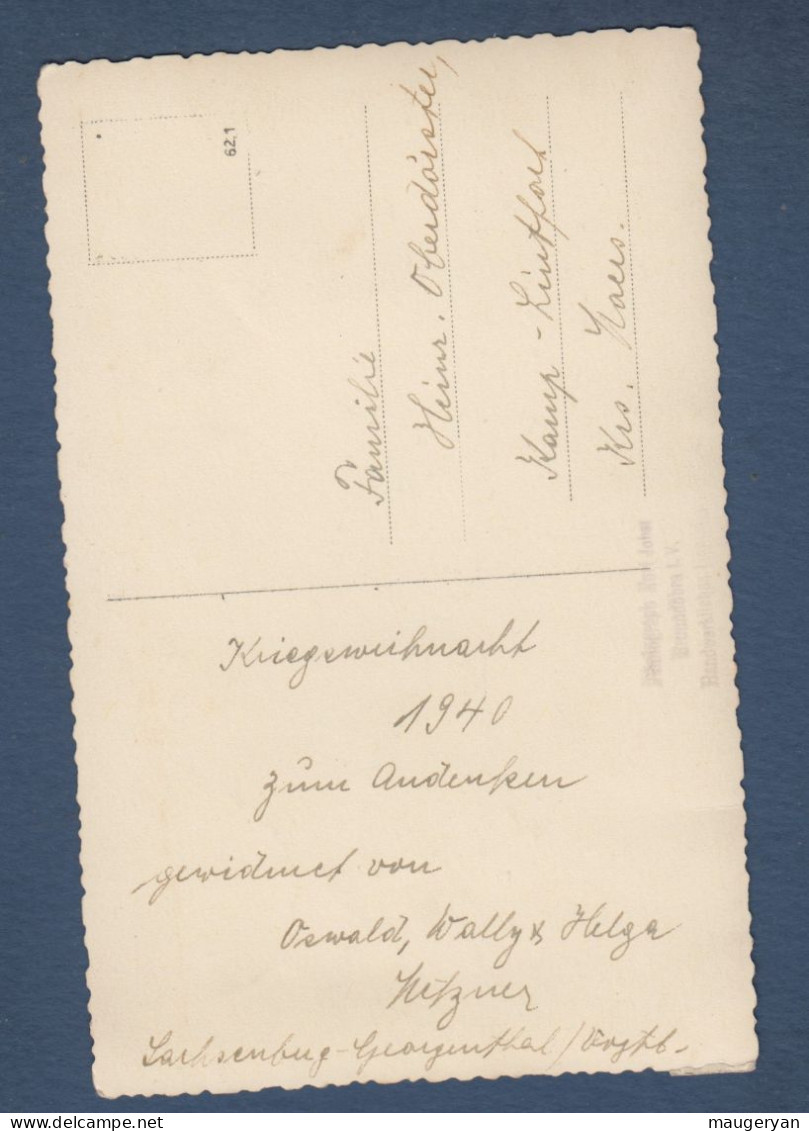 62,1
Familie
Heinr. Oberdörster,
Kamp-Lintfort
Krs. Moers.
Kriegsweihnacht
1940
zum Andenken
gewidmet von
Oswald, Wally & Helga
Sachsenberg-Georgenthal/Vogtl.
maugeryan